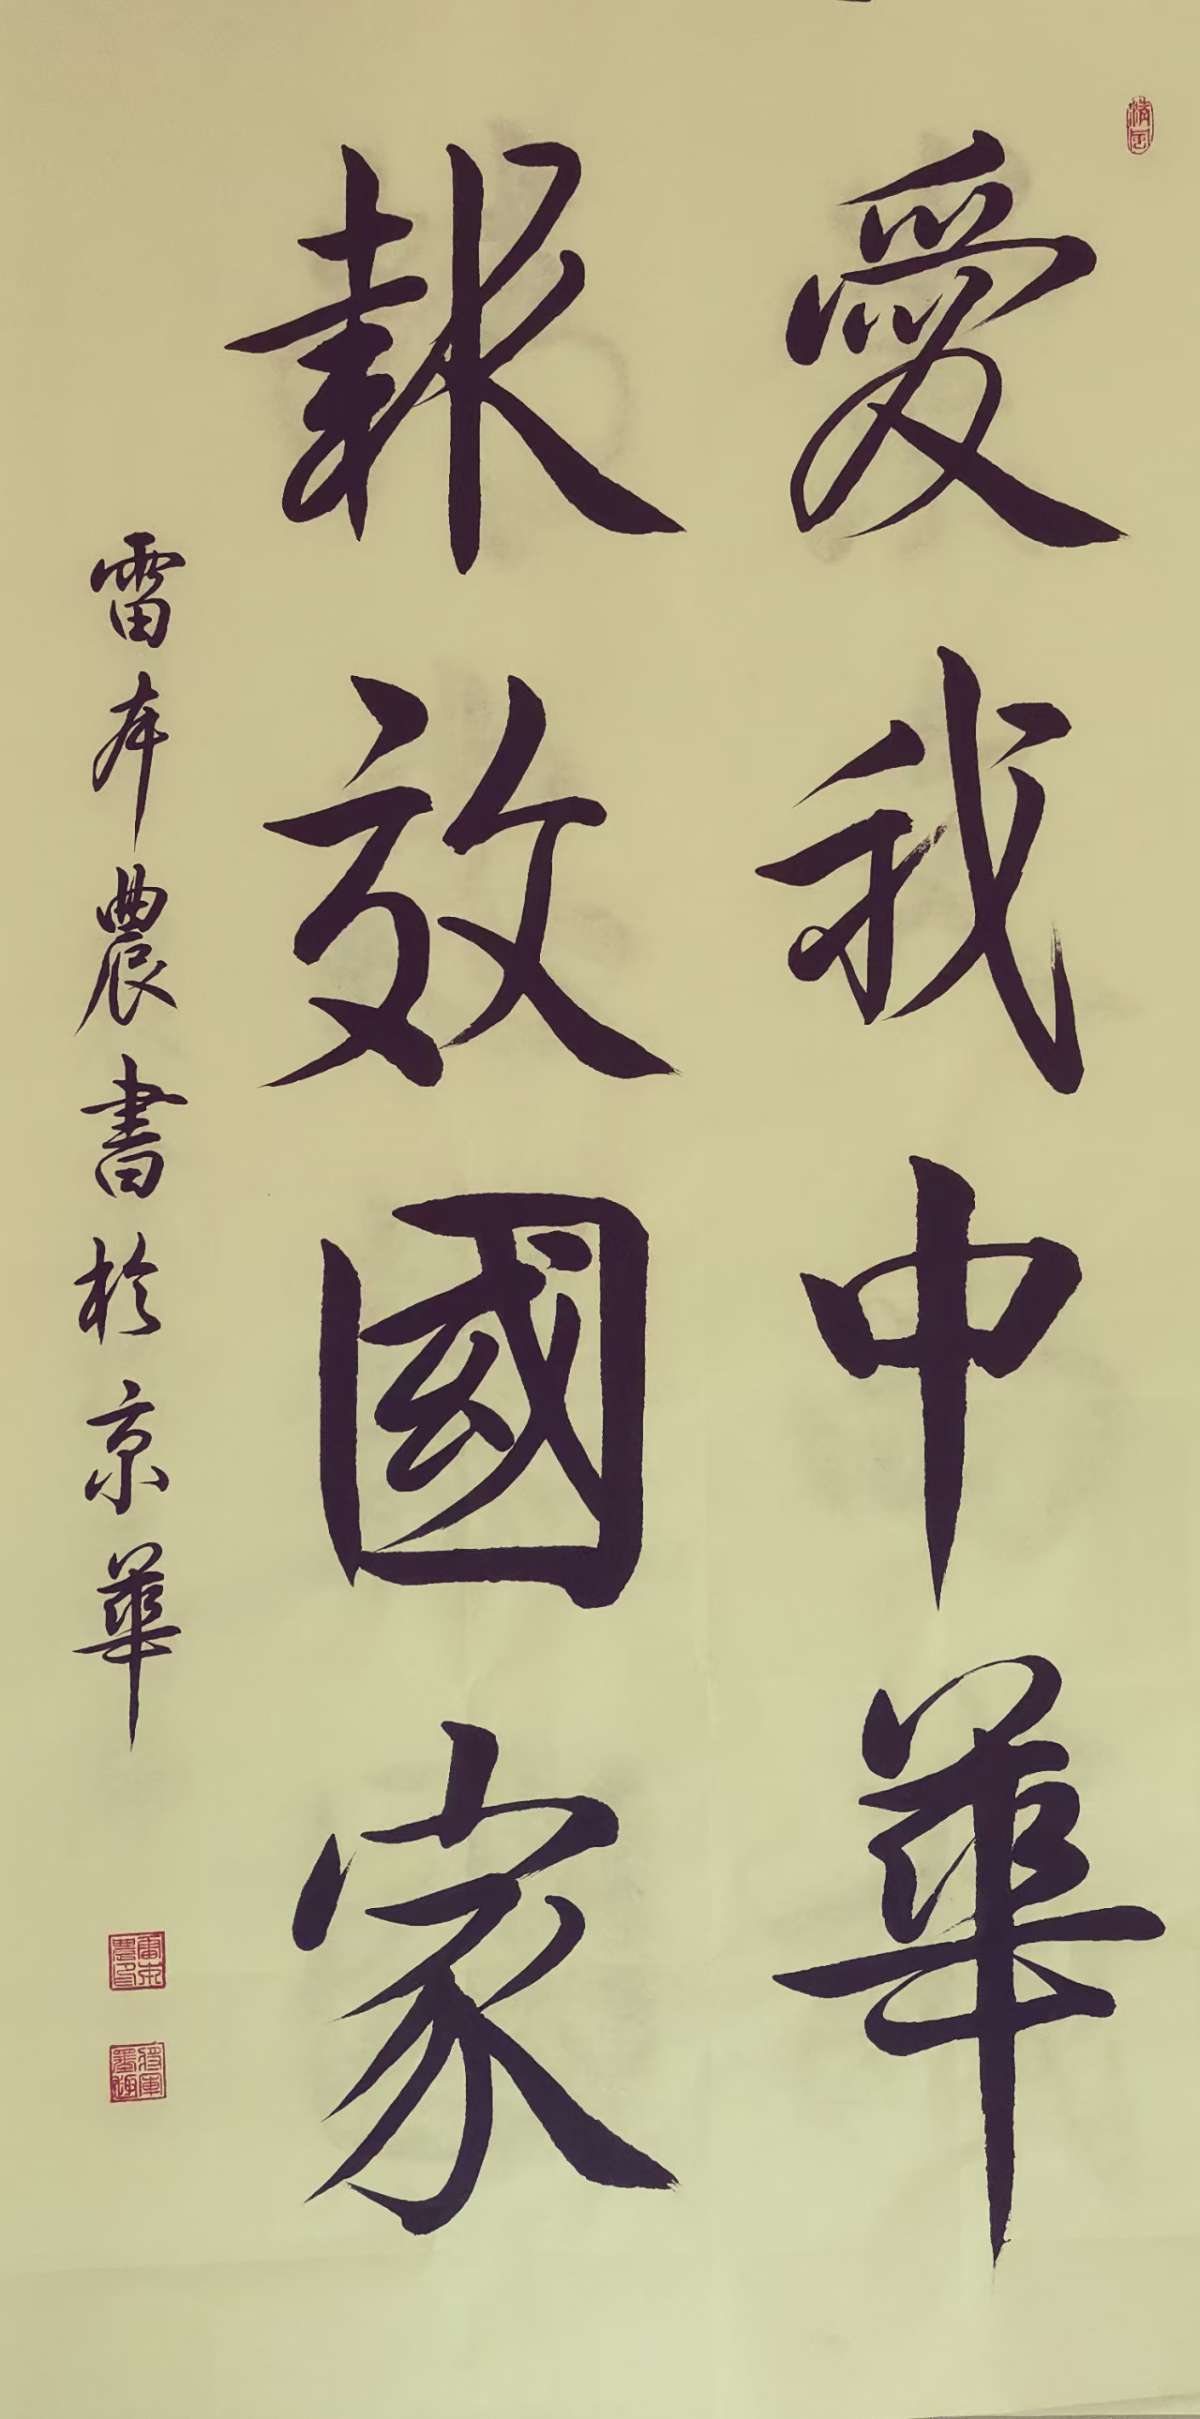 愛我中華
報效國家
雷本農書於京華